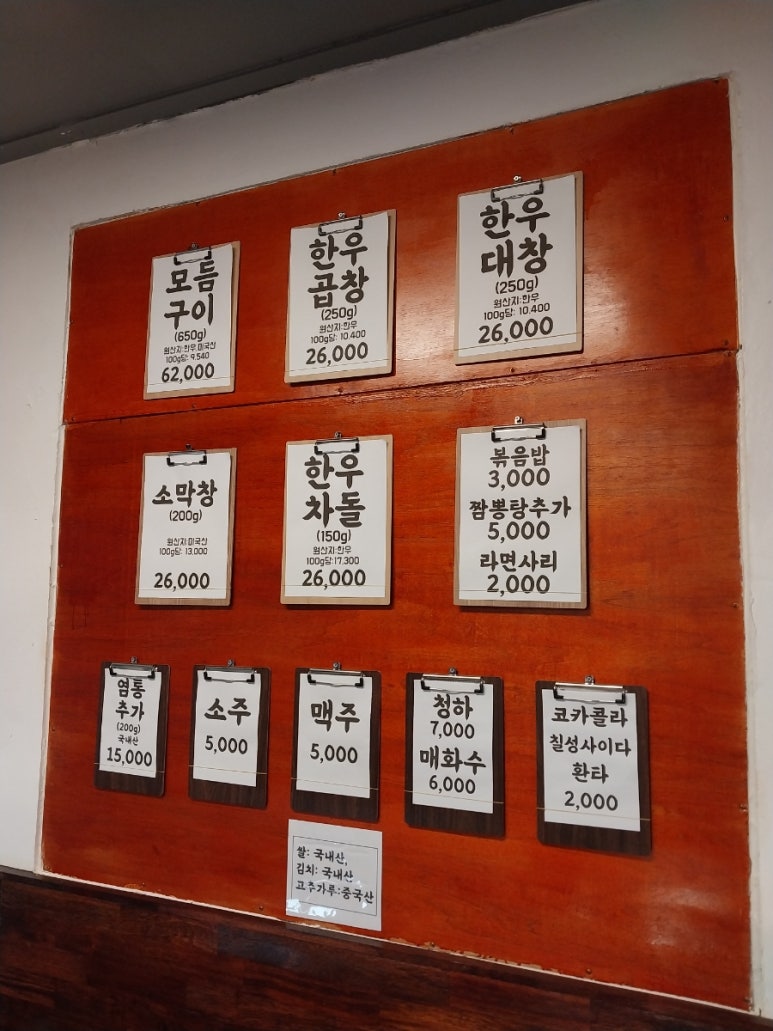 모듬
구이
(650g)
원산지:한우,미국산
100g당: 9,540
62,000
한우
곱창
(250g)
원산지:한우
100g당: 10,400
26,000
한우
대창
(250g)
원산지:한우
100g당: 10,400
26,000
소막창
(200g)
원산지:미국산
100g당: 13,000
26,000
한우
차돌
(150g)
원산지:한우
100g당:17,300
26,000
볶음밥
3,000
짬뽕탕추가
5,000
라면사리
2,000
염통
추가
(200g)
국내산
15,000
소주
5,000
맥주
5,000
청하
7,000
매화수
6,000
코카콜라
칠성사이다
환타
2,000
쌀: 국내산,
김치: 국내산
고추가루:중국산